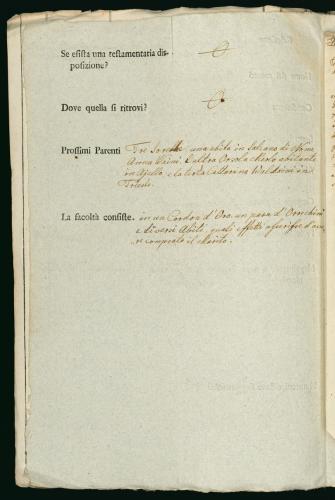 Se esista una testamentaria dis-
posizione? O
Dove quella si ritrovi? O
Prossimi Parenti Tre Sorelle una abita in Salcano di Nome
Anna l'altra Orsola abitante
in Ajello, e la terza Cattarina in
Trieste.
La facoltà consiste. in un Cordon d'Oro, un para d'Orecchini
e diversi Abiti, quali effetti asserisce d'aver
comprato il Marito.